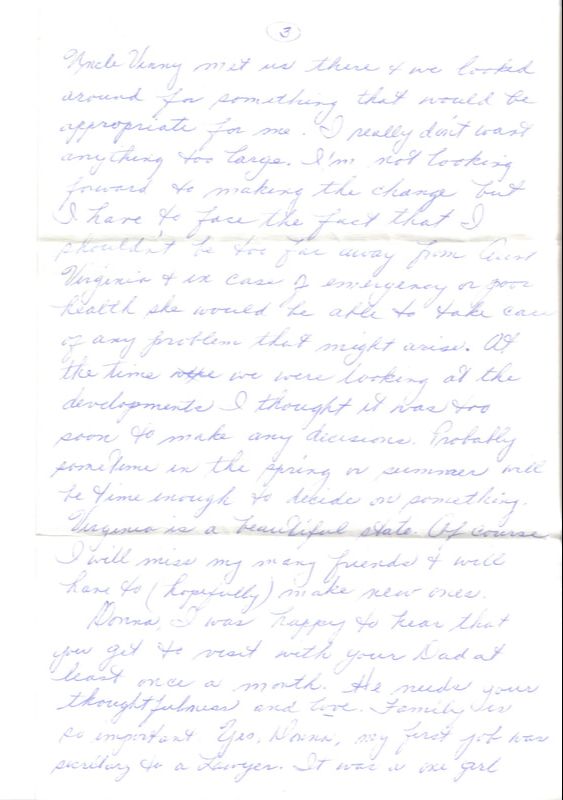 3
Uncle Vinny met us there & we looked
around for something that would be
appropriate for me. I really don't want
anything too large. I'm not looking
forward to making the change but
I have to face the fact that I
shouldn't be too far away from Aunt
Virginia & in case of emergency or poor
health she would be able to take care
of any problem that might arise. At
the time we were looking at the
developments I thought it was too
soon to make any decisions. Probably
sometime in the spring or summer will
be time enough to decide on something.
Virginia is a beautiful state. Of course
I will miss my many friends & will
have to (hopefully) make new ones.
Donna, I was happy to hear that
you get to visit with your Dad at
least once a month. He needs your
thoughtfulness and love. Family is
so important. Yes, Donna, my first job was
secretary to a Lawyer. It was a one girl